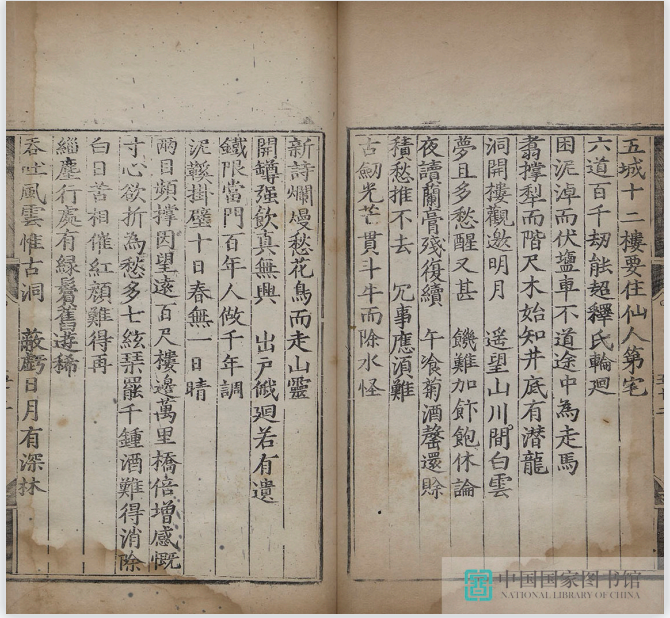 五城十二樓要住仙人第宅
六道百千刼能超釋氏輪廻
困泥淖而伏鹽車不道途中為走馬
翥撑犁而階尺木始知井底有潛龍
洞開樓觀邀明月 遥望山川間白雲
夢且多愁醒又甚 饑難加飰飽休論
夜讀蘭膏殘復續 午飡菊酒罄還賒
積愁推不去 冗事應須難
古劒光芒貫斗牛而除水怪
新詩爛熳愁花鳥而走山靈
開罇强飲真無興 出戸俄廻若有遺
鐵限當門百年人做千年調
泥 掛壁十日春無一日晴
兩目頻撑因望遠百尺樓邊萬里橋倍增感慨
寸心欲折為愁多七絃琴罷千鍾酒難得消除
白日苦相催紅顔難得再
緇塵行處有緑鬢舊遊稀
吞吐風雲惟古洞 蔽虧日月有深林
中国国家图书馆
NATIONAL LIBRARY OF CHINA